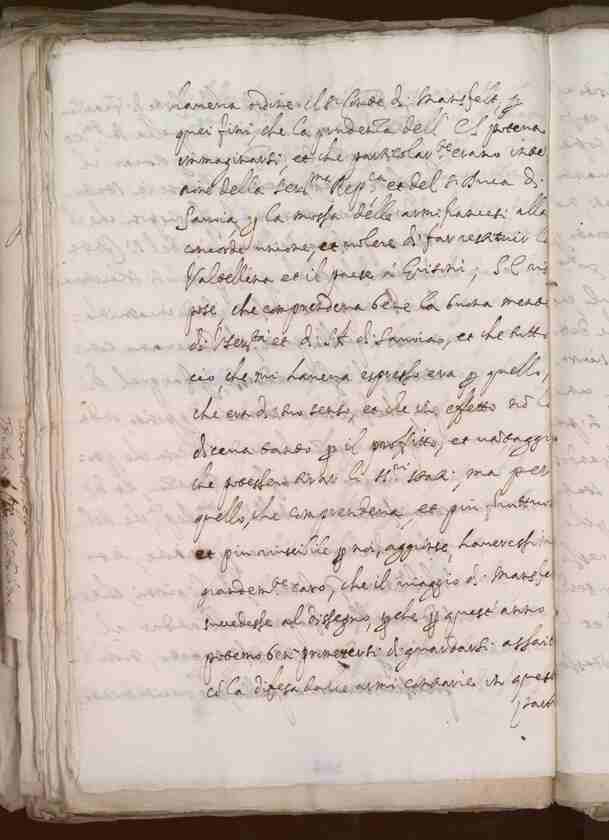 haveva ordine il Sr Conte di Mansfelt, p
quei fini, che la prudenza dell' Ecc. poteva
immaginarsi, et che particolarte erano inte
della Serma Repca et del Sr Duca di
Savoia, p la mossa delle armi francesi alla
concorde unione, et volere di far restituir la
Valtellina et il paese a Grisoni; S. E. ris
pose che comprendeva bene la buona mente
di V. Serta et di S. A. di Savoia, et che tutto
ciò, che mi haveva espresso era p quello,
che era di suo senso, et che in effetto nō lo
diceva tanto p il profitto, et vantaggio
che potessero li SSri Stati; ma per
quello, che comprendeva, et più fruttuoso
et più p noi, aggiunse, haveressimo
grandemte caro, che il viaggio di Mansfelt
succedesse al dissegno, pche p quest' anno
potemo ben prometterci di guardarsi assai
cō la difesa dalle armi contrarie in queste
parti